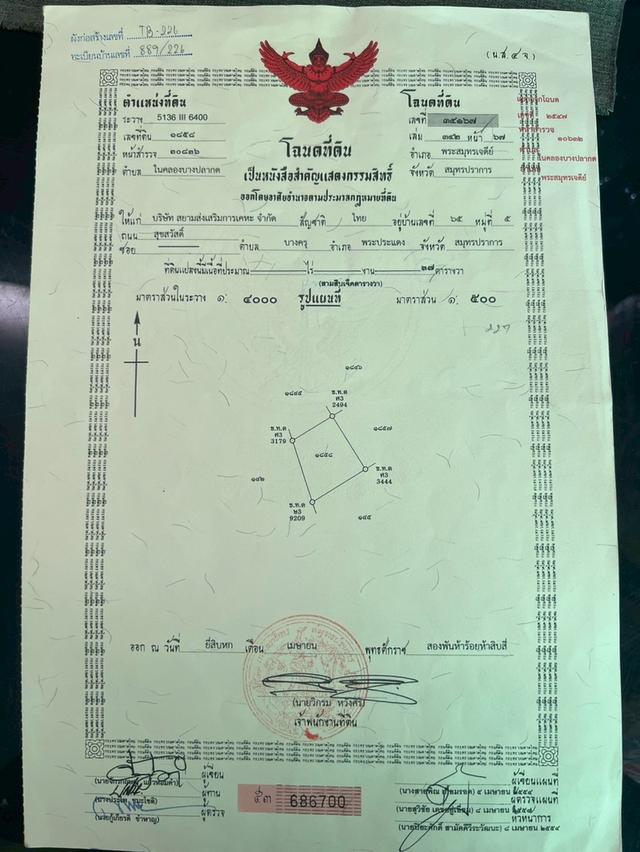 ผังก่อสร้างเลขที่ TB-226
ทะเบียนบ้านเลขที่ 889/226
(น.ส.๔ จ)
ตำแหน่งที่ดิน
ระวาง 5136 III 6400
เลขที่ดิน ๑๘๕๘
หน้าสำรวจ ๑๐๘๓๖
ตำบล ในคลองบางปลากด
โฉนดที่ดิน
เลขที่ ๓๕๑๖๗
เล่ม ๓๕๒ หน้า ๖๗
อำเภอ พระสมุทรเจดีย์
จังหวัด สมุทรปราการ
เลขที่ ๒๕๔๗
หน้าสำรวจ ๑๐๖๓๒
ตำบล ในคลองบางปลากด
อำเภอ พระสมุทรเจดีย์
โฉนดที่ดิน
เป็นหนังสือสำคัญแสดงกรรมสิทธิ์
ออกโดยอาศัยอำนาจตามประมวลกฎหมายที่ดิน
ให้แก่ บริษัท สยามส่งเสริมการเคหะ จำกัด สัญชาติ ไทย อยู่บ้านเลขที่ ๖๕ หมู่ที่ ๕
ถนน สุขสวัสดิ์
ซอย ตำบล บางครุ อำเภอ พระประแดง จังหวัด สมุทรปราการ
ที่ดินแปลงนี้มีเนื้อที่ประมาณ ไร่ งาน ๓๗ ตารางวา
(สามสิบเจ็ดตารางวา)
มาตราส่วนในระวาง ๑: ๔๐๐๐ รูปแผนที่ มาตราส่วน ๑: ๕๐๐
227
น
๑๘๕๖
๑๘๔๕
ช.ห.ด
ศ3
2494
๑๘๕๗
ช.ห.ด
ศ3
3179
๑๘๕๘
ช.ห.ด
ศ3
3444
๑๔๒
ช.ห.ด
ษ3
9209
๑๔๕
ออก ณ วันที่ ยี่สิบหก เดือน เมษายน พุทธศักราช สองพันห้าร้อยห้าสิบสี่
(นายวิกรม หวังศิริ)
เจ้าพนักงานที่ดิน
ผู้เขียน
ผู้ทาน
ผู้ตรวจ
๕๓ 686700
ผู้เขียนแผนที่
๕ เมษายน ๒๕๕๔
ผู้ตรวจแผนที่
๘ เมษายน ๒๕๕๔
หัวหน้าการ
(นายปิยะศักดิ์ สามัคคีวีระวัฒนะ) ๘ เมษายน ๒๕๕๔